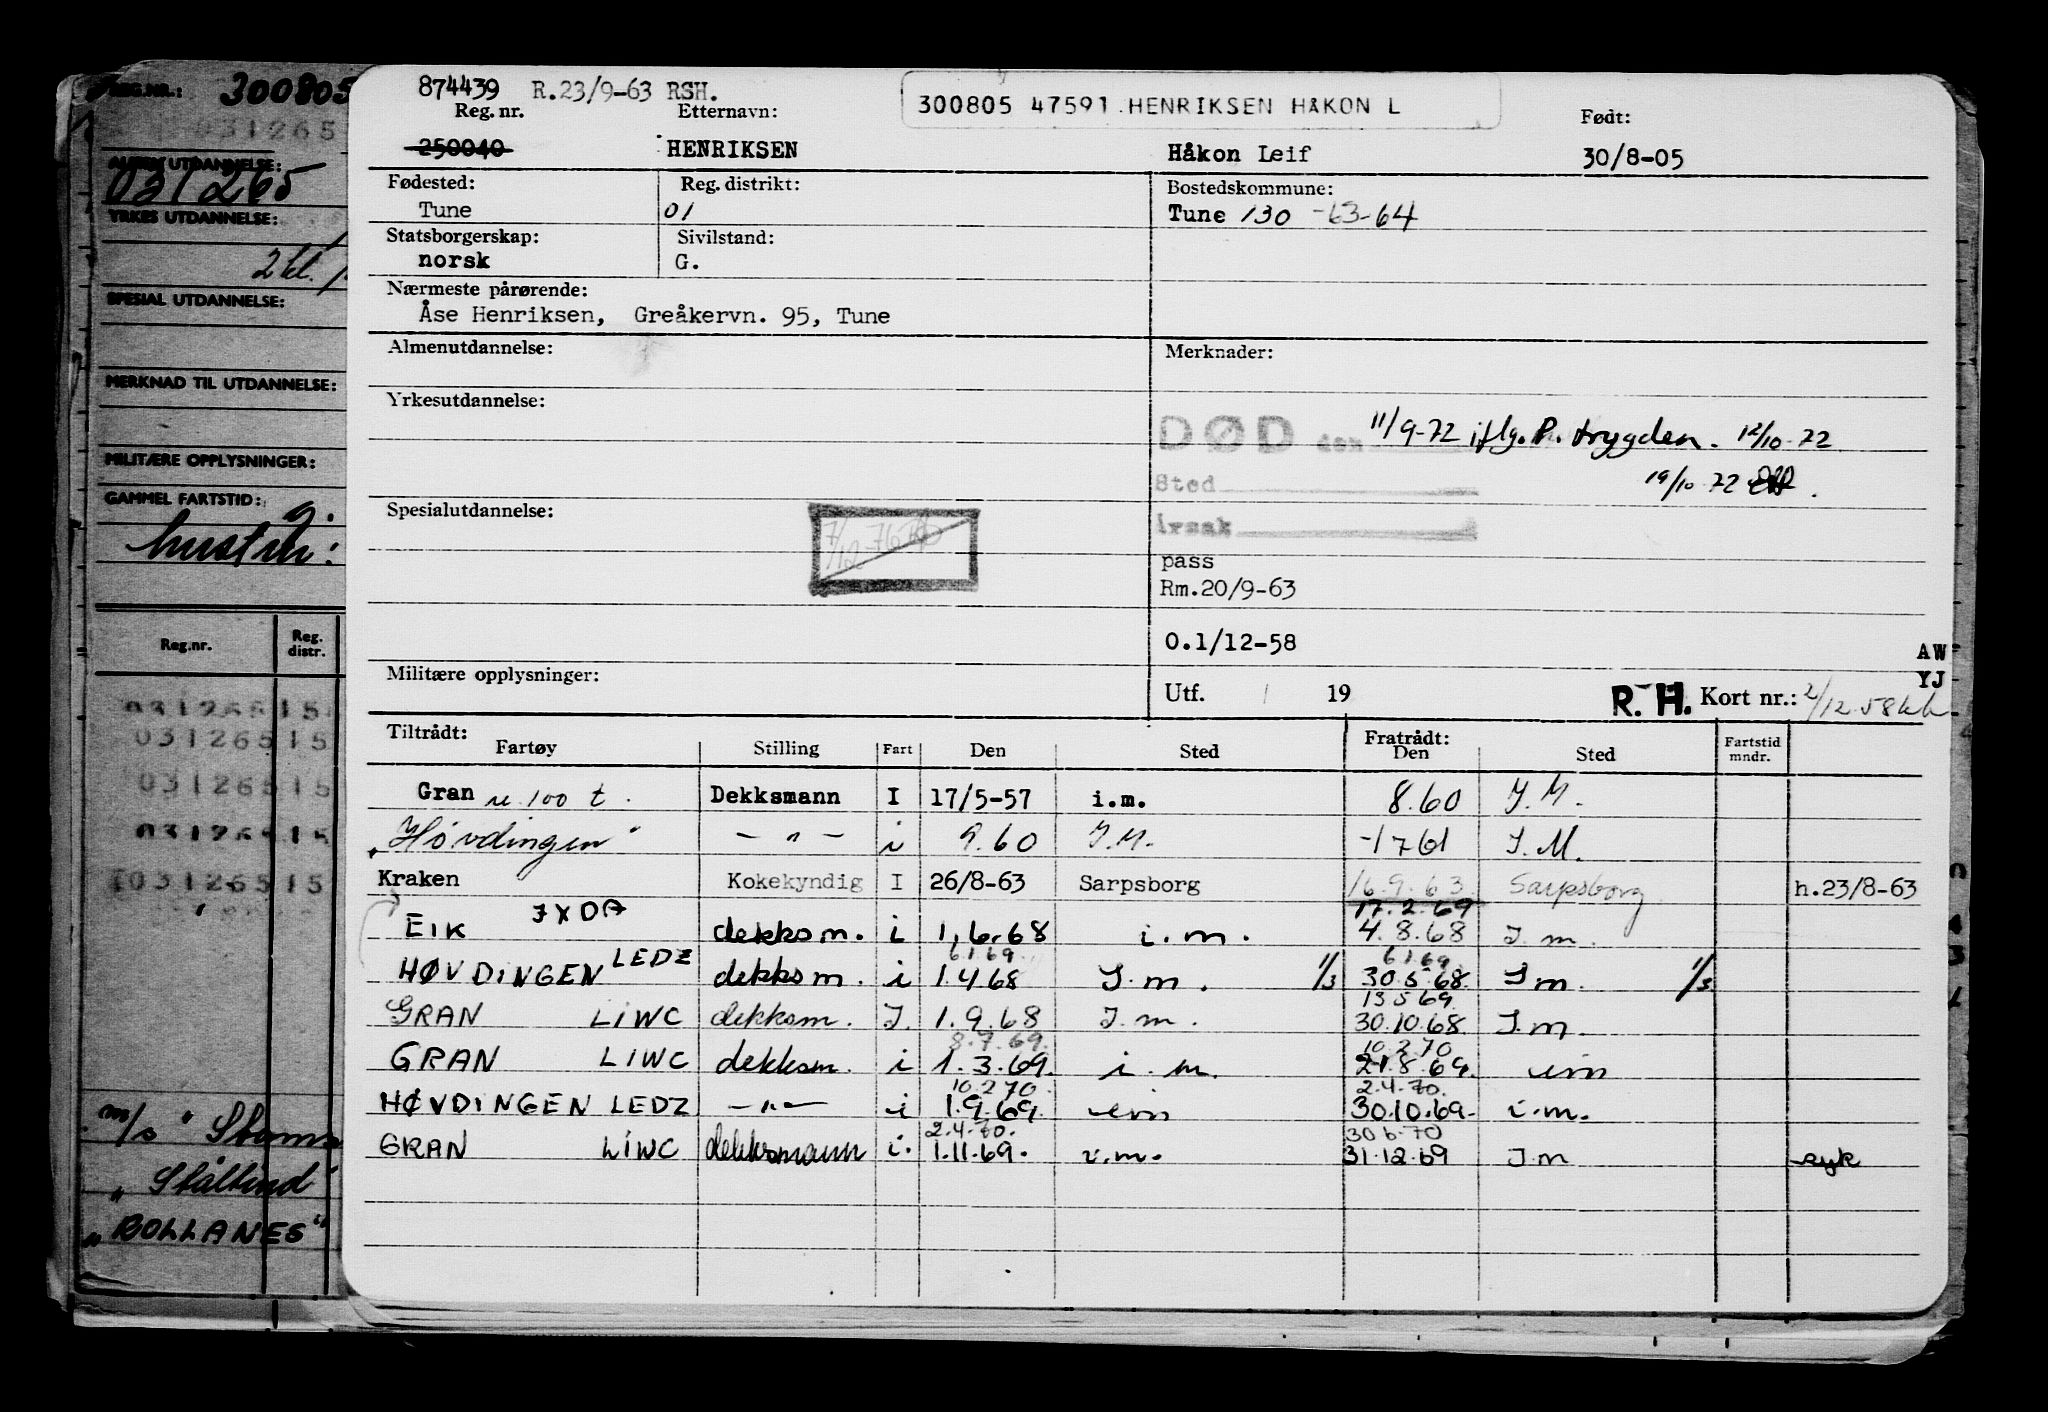 REG.NR.: 300805
031265
ALMEN UTDANNELSE:
031265
YRKES UTDANNELSE:
2 kl.
SPESIAL UTDANNELSE:
MERKNAD TIL UTDANNELSE:
MILITÆRE OPPLYSNINGER:
GAMMEL FARTSTID: g.
hustru:
Reg.nr. Reg. distr.
031265 15
031265 15
031265 15
031265 15
031265 15
m/s "Stams
" Stålbind"
" ROLLANES"
874439 R.23/9-63 RSH. 300805 47591 HENRIKSEN HÅKON L
Reg. nr. Etternavn: Født:
250040 HENRIKSEN Håkon Leif 30/8-05
Fødested: Reg. distrikt: Bostedskommune:
Tune 01 Tune 130 -63-64
Statsborgerskap: Sivilstand:
norsk G.
Nærmeste pårørende:
Åse Henriksen, Greåkervn. 95, Tune
Almenutdannelse: Merknader:
Yrkesutdannelse:
DØD den 11/9-72 iflg. P. trygden. 12/10-72
Sted 19/10 72
Spesialutdannelse: 7/12-76 årsak
pass
Rm.20/9-63
0.1/12-58
AW
YJ
Militære opplysninger: Utf. 19 R.H. Kort nr.: 2/12 58
Tiltrådt: Fratrådt:
Fartøy Stilling Fart Den Sted Den Sted Fartstid mndr.
Gran u. 100 t. Dekksmann I 17/5-57 i.m. 8.60 I.M.
"Høvdingen" — " — i 9.60 I.M. -1761 I.M.
Kraken Kokekyndig I 26/8-63 Sarpsborg 16.9.63 Sarpsborg h.23/8-63
17.2.69
EIK JXDA dekksm. i 1.6.68 i.m. 4.8.68 I.m.
6.1.69 6.1.69
HØVDINGEN LEDZ dekksm. i 1.4 68 I.m. 1/3 30.5.68. I.m. 1/3
13 5 69
GRAN LIWC dekksm. I. 1.9.68 I.m. 30.10.68 I.m.
8.7.69. 10.2.70
GRAN LIWC dekksm. i 1.3.69. i.m. 21.8.69. im
10.2 70. 2.4.70.
HØVDINGEN LEDZ — " — i 1.9.69. im 30.10.69. i.m.
2.4.70. 30.6.70
GRAN LIWC dekksmann i. 1.11.69. i.m. 31.12.69 I.m syk